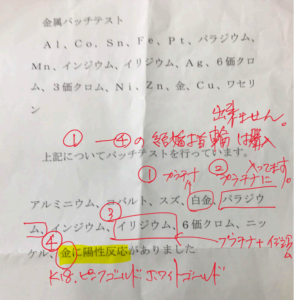 金属パッチテスト
Al、Co、Sn、Fe、Pt、パラジウム、
Mn、インジウム、イリジウム、Ag、6価クロ
ム、3価クロム、Ni、Zn、金、Cu、ワセリ
ン
出来ません。
①―④の結婚指輪は購入
上記についてパッチテストを行っています。
①プラチナ
②プラチナに入ってます。
アルミニウム、コバルト、スズ、白金、パラジウ
③
ム、インジウム、イリジウム、6価クロム、ニッ
プラチナ+
④
ケル、金に陽性反応がありました
K18.ピンクゴールド ホワイトゴールド